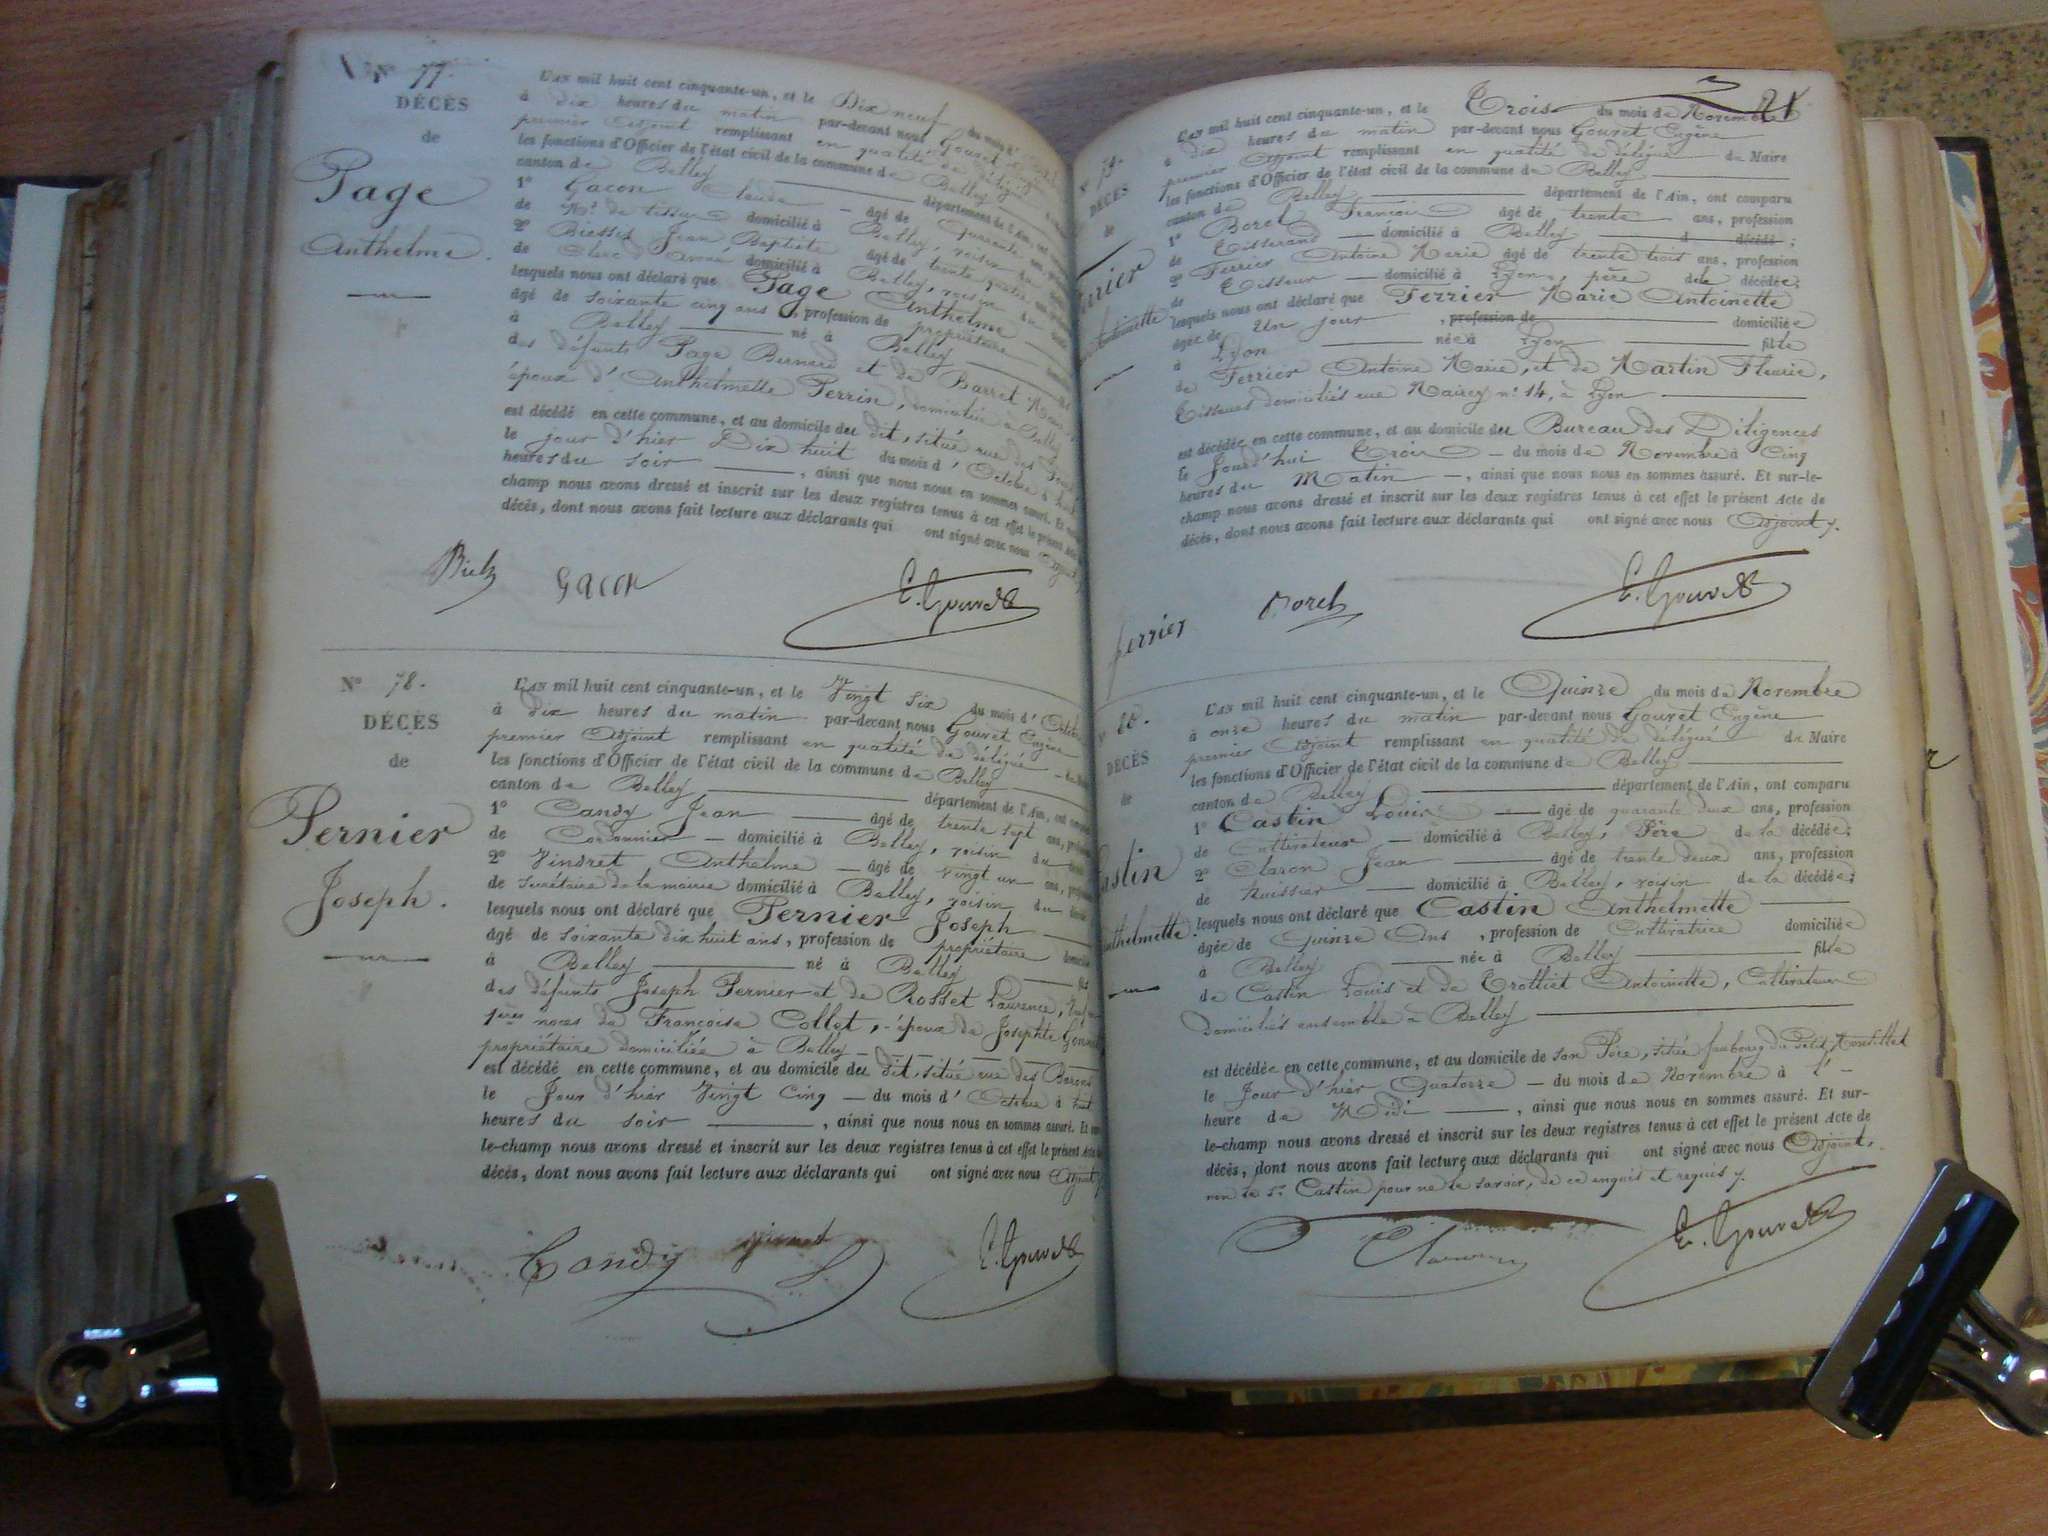 N° 77.
DÉCÈS
de
Page
Anthelme.
L'AN mil huit cent cinquante-un, et le Dix neuf du mois d'
à dix heures du matin par-devant nous Gouvet
premier Adjoint remplissant en qualité de délégué
les fonctions d'Officier de l'état civil de la commune de Belley
canton de Belley département de l'Ain, ont
1° Gacon Claude âgé de quarante
de Md de tissus domicilié à Belley, voisin
2° Jean Baptiste âgé de trente quatre ans
de Clerc d'avoué domicilié à Belley, voisin du
lesquels nous ont déclaré que Page Anthelme
âgé de soixante cinq ans, profession de propriétaire
à Belley né à Belley
des défunts Page Bernard et de Barret
époux d'Anthelmette Perrin, domiciliée à Belley
est décédé en cette commune, et au domicile du dit, situé rue des
le jour d'hier Dix huit du mois d'Octobre à
heures du soir, ainsi que nous nous en sommes assuré. Et
champ nous avons dressé et inscrit sur les deux registres tenus à cet effet le présent Acte
décès, dont nous avons fait lecture aux déclarants qui ont signé avec nous Adjoint
Gacon E. Gouvet
N° 78.
DÉCÈS
de
Pernier
Joseph.
L'AN mil huit cent cinquante-un, et le Vingt six du mois d'Octobre
à dix heures du matin par-devant nous Gouvet Eugène
premier Adjoint remplissant en qualité de délégué
les fonctions d'Officier de l'état civil de la commune de Belley
canton de Belley département de l'Ain, ont
1° Candy Jean âgé de trente sept ans,
de Cordonnier domicilié à Belley, voisin du
2° Vindret Anthelme âgé de vingt un ans,
de secrétaire de la mairie domicilié à Belley, voisin du
lesquels nous ont déclaré que Pernier Joseph
âgé de soixante dix huit ans, profession de propriétaire
à Belley né à Belley fils
des défunts Joseph Pernier et de Rosset Laurence, veuf en
1ères noces de Françoise Collet, époux de Josephte
propriétaire domiciliée à Belley
est décédé en cette commune, et au domicile du dit, situé rue des Barons
le Jour d'hier Vingt Cinq du mois d'Octobre à huit
heures du soir, ainsi que nous nous en sommes assuré. Et sur
le-champ nous avons dressé et inscrit sur les deux registres tenus à cet effet le présent Acte
décès, dont nous avons fait lecture aux déclarants qui ont signé avec nous Adjoint
Candy E. Gouvet
21
79.
DÉCÈS
de
L'AN mil huit cent cinquante-un, et le Trois du mois de Novembre
à dix heures du matin par-devant nous Gouvet Eugène
premier Adjoint remplissant en qualité de délégué du Maire
les fonctions d'Officier de l'état civil de la commune de Belley
canton de Belley département de l'Ain, ont comparu
1° Borel François âgé de trente ans, profession
de Tisserand domicilié à Belley d décédé;
2° Ferrier Antoine Marie âgé de trente trois ans, profession
de Tisseur domicilié à Lyon, père de la décédée;
lesquels nous ont déclaré que Ferrier Marie Antoinette
âgée de Un jour, profession de domiciliée
à Lyon née à Lyon fille
de Ferrier Antoine Marie, et de Martin Fleurie,
Tisseurs domiciliés rue Mairey n° 14, à Lyon
est décédée en cette commune, et au domicile du Bureau des Diligences
le Jourd'hui Trois du mois de Novembre à Cinq
heures du Matin, ainsi que nous nous en sommes assuré. Et sur-le-
champ nous avons dressé et inscrit sur les deux registres tenus à cet effet le présent Acte de
décès, dont nous avons fait lecture aux déclarants qui ont signé avec nous Adjoint
ferrier Borel E. Gouvet
80.
DÉCÈS
de
Castin
Anthelmette.
L'AN mil huit cent cinquante-un, et le Quinze du mois de Novembre
à onze heures du matin par-devant nous Gouvet Eugène
premier Adjoint remplissant en qualité de délégué du Maire
les fonctions d'Officier de l'état civil de la commune de Belley
canton de Belley département de l'Ain, ont comparu
1° Castin Louis âgé de quarante deux ans, profession
de Cultivateur domicilié à Belley, Père de la décédée;
2° Claron Jean âgé de trente deux ans, profession
de huissier domicilié à Belley, voisin de la décédée;
lesquels nous ont déclaré que Castin Anthelmette
âgée de Quinze Ans, profession de Cultivatrice domiciliée
à Belley née à Belley fille
de Castin Louis et de Trolliet Antoinette, Cultivateurs
domiciliés ensemble à Belley
est décédée en cette commune, et au domicile de son Père, située faubourg du Petit
le Jour d'hier Quatorze du mois de Novembre à l'
heure de Midi, ainsi que nous nous en sommes assuré. Et sur-
le-champ nous avons dressé et inscrit sur les deux registres tenus à cet effet le présent Acte de
décès, dont nous avons fait lecture aux déclarants qui ont signé avec nous Adjoint,
non le Sr Castin pour ne le savoir, de ce enquis et requis
Claron E. Gouvet